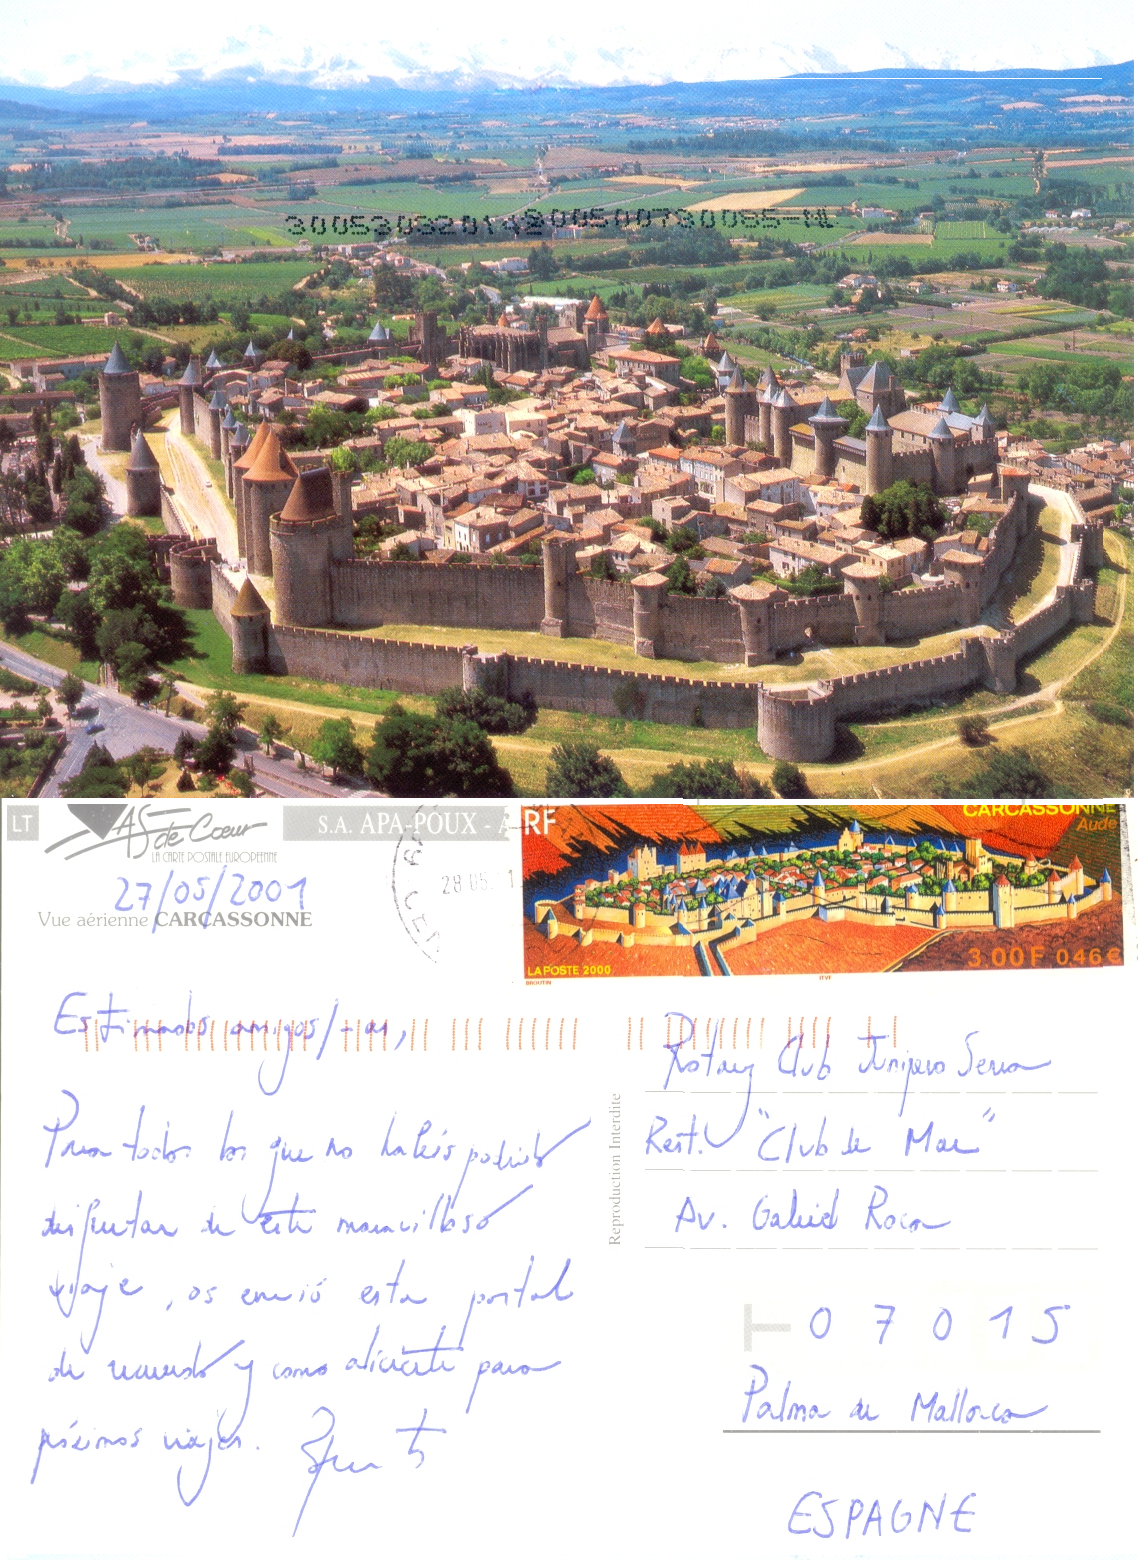 300530320142800500730065-UL
LT
AS de Cœur
LA CARTE POSTALE EUROPÉENNE
S.A. APA-POUX - A
RF
CARCASSONNE
Aude
28 05
27/05/2001
Vue aérienne CARCASSONNE
3.00 F 0,46 €
LA POSTE 2000
BROUTIN
ITVF
Estimados amigos/-as,
Para todos los que no habéis podido
disfrutar de este maravilloso
viaje, os envió esta postal
de recuerdo y como aliciente para
próximos viajes.
Reproduction Interdite
Rotary Club Junípero Serra
Rest. "Club de Mar"
Av. Gabriel Roca
07015
Palma de Mallorca
ESPAGNE